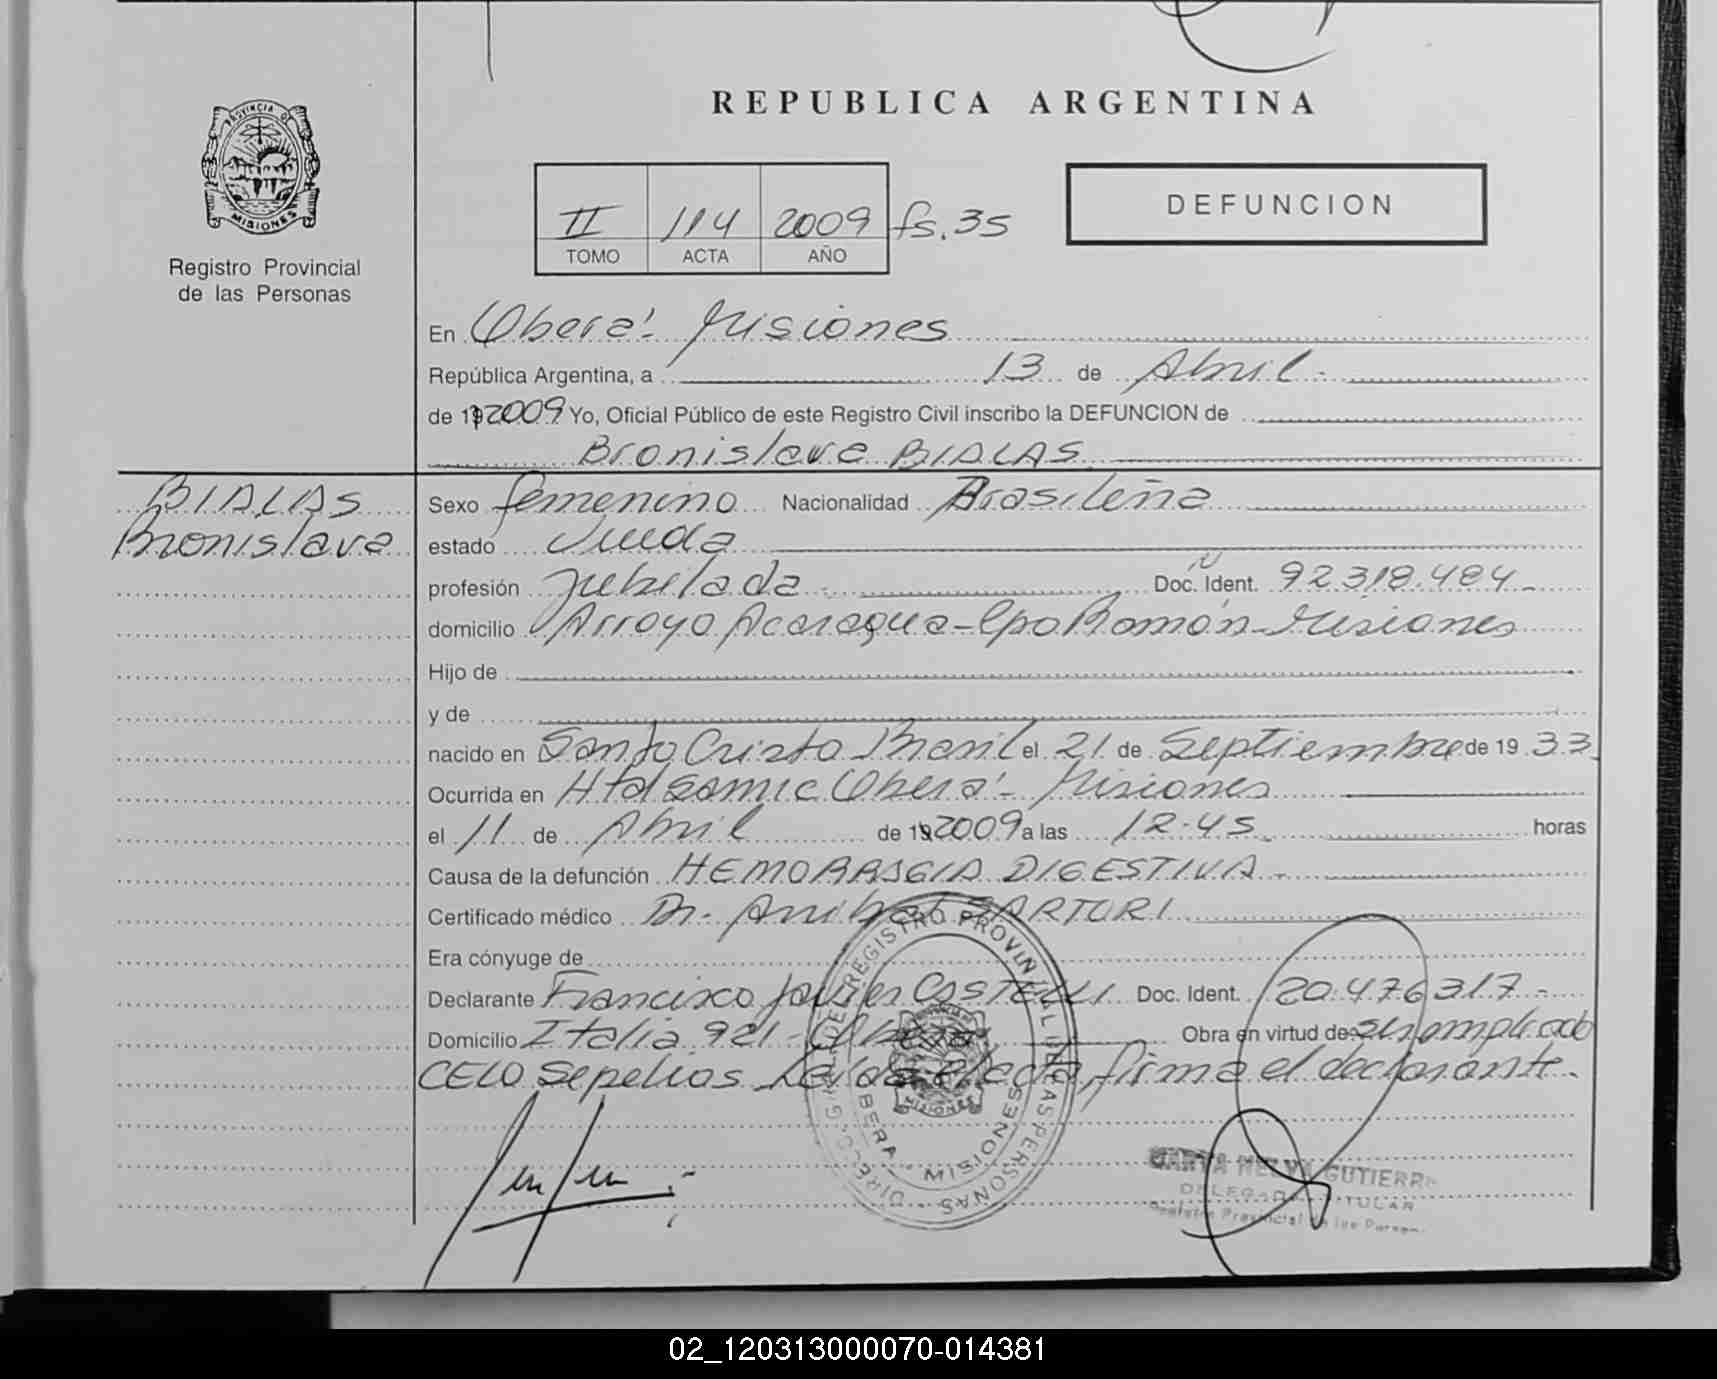 REPUBLICA ARGENTINA
PROVINCIA DE
MISIONES
Registro Provincial
de las Personas
II 114 2009 fs. 35
TOMO ACTA AÑO
DEFUNCION
En Oberá - Misiones
República Argentina, a 13 de Abril -
de 19 2009 Yo, Oficial Público de este Registro Civil inscribo la DEFUNCION de
Bronislava BIALAS
BIALAS
Bronislava
Sexo femenino Nacionalidad Brasileña
estado Viuda
profesión Jubilada - Doc. Ident. 92.318.484-
domicilio Arroyo Acaragua - Cpo Ramón - Misiones
Hijo de
y de
nacido en Santo Cristo Brasil el 21 de Septiembre de 19 33
Ocurrida en Htal Samic Oberá - Misiones
el 11 de Abril de 19 2009 a las 12.45 horas
Causa de la defunción HEMORRAGIA DIGESTIVA -
Certificado médico Dr. Anibal SARTORI
Era cónyuge de
Declarante Francisco Javier CASTELLI Doc. Ident. 20.476.317-
Domicilio Italia 921 - Oberá Obra en virtud de ser empleado
CELO Sepelios Leída el acta firma el declarante -
DIRECC. GRAL. DEL REGISTRO PROVINCIAL DE LAS PERSONAS
OBERA - MISIONES
MISIONES
MARTA GUTIERR
DELEGADA TITULAR
Registro Provincial de las Person
02_120313000070-014381